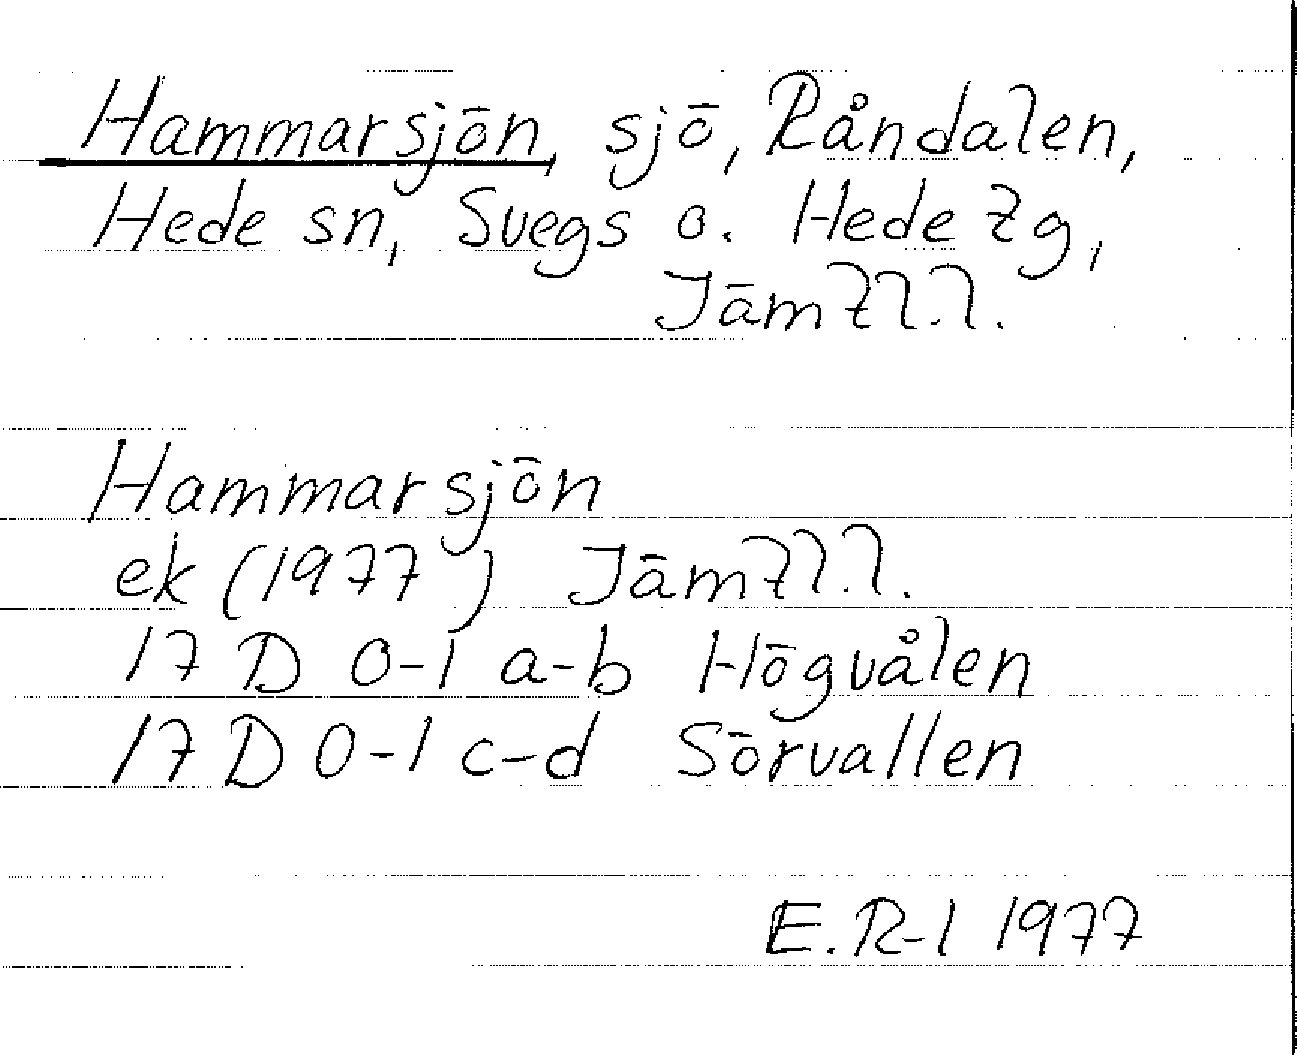 Hammarsjön, sjö, Råndalen,
Hede sn, Svegs o. Hede tg,
Jämtl.l.
Hammarsjön
ek (1977) Jämtl.l.
17 D 0-1 a-b Högvålen
17 D 0-1 c-d Sörvallen
E.R-l 1977